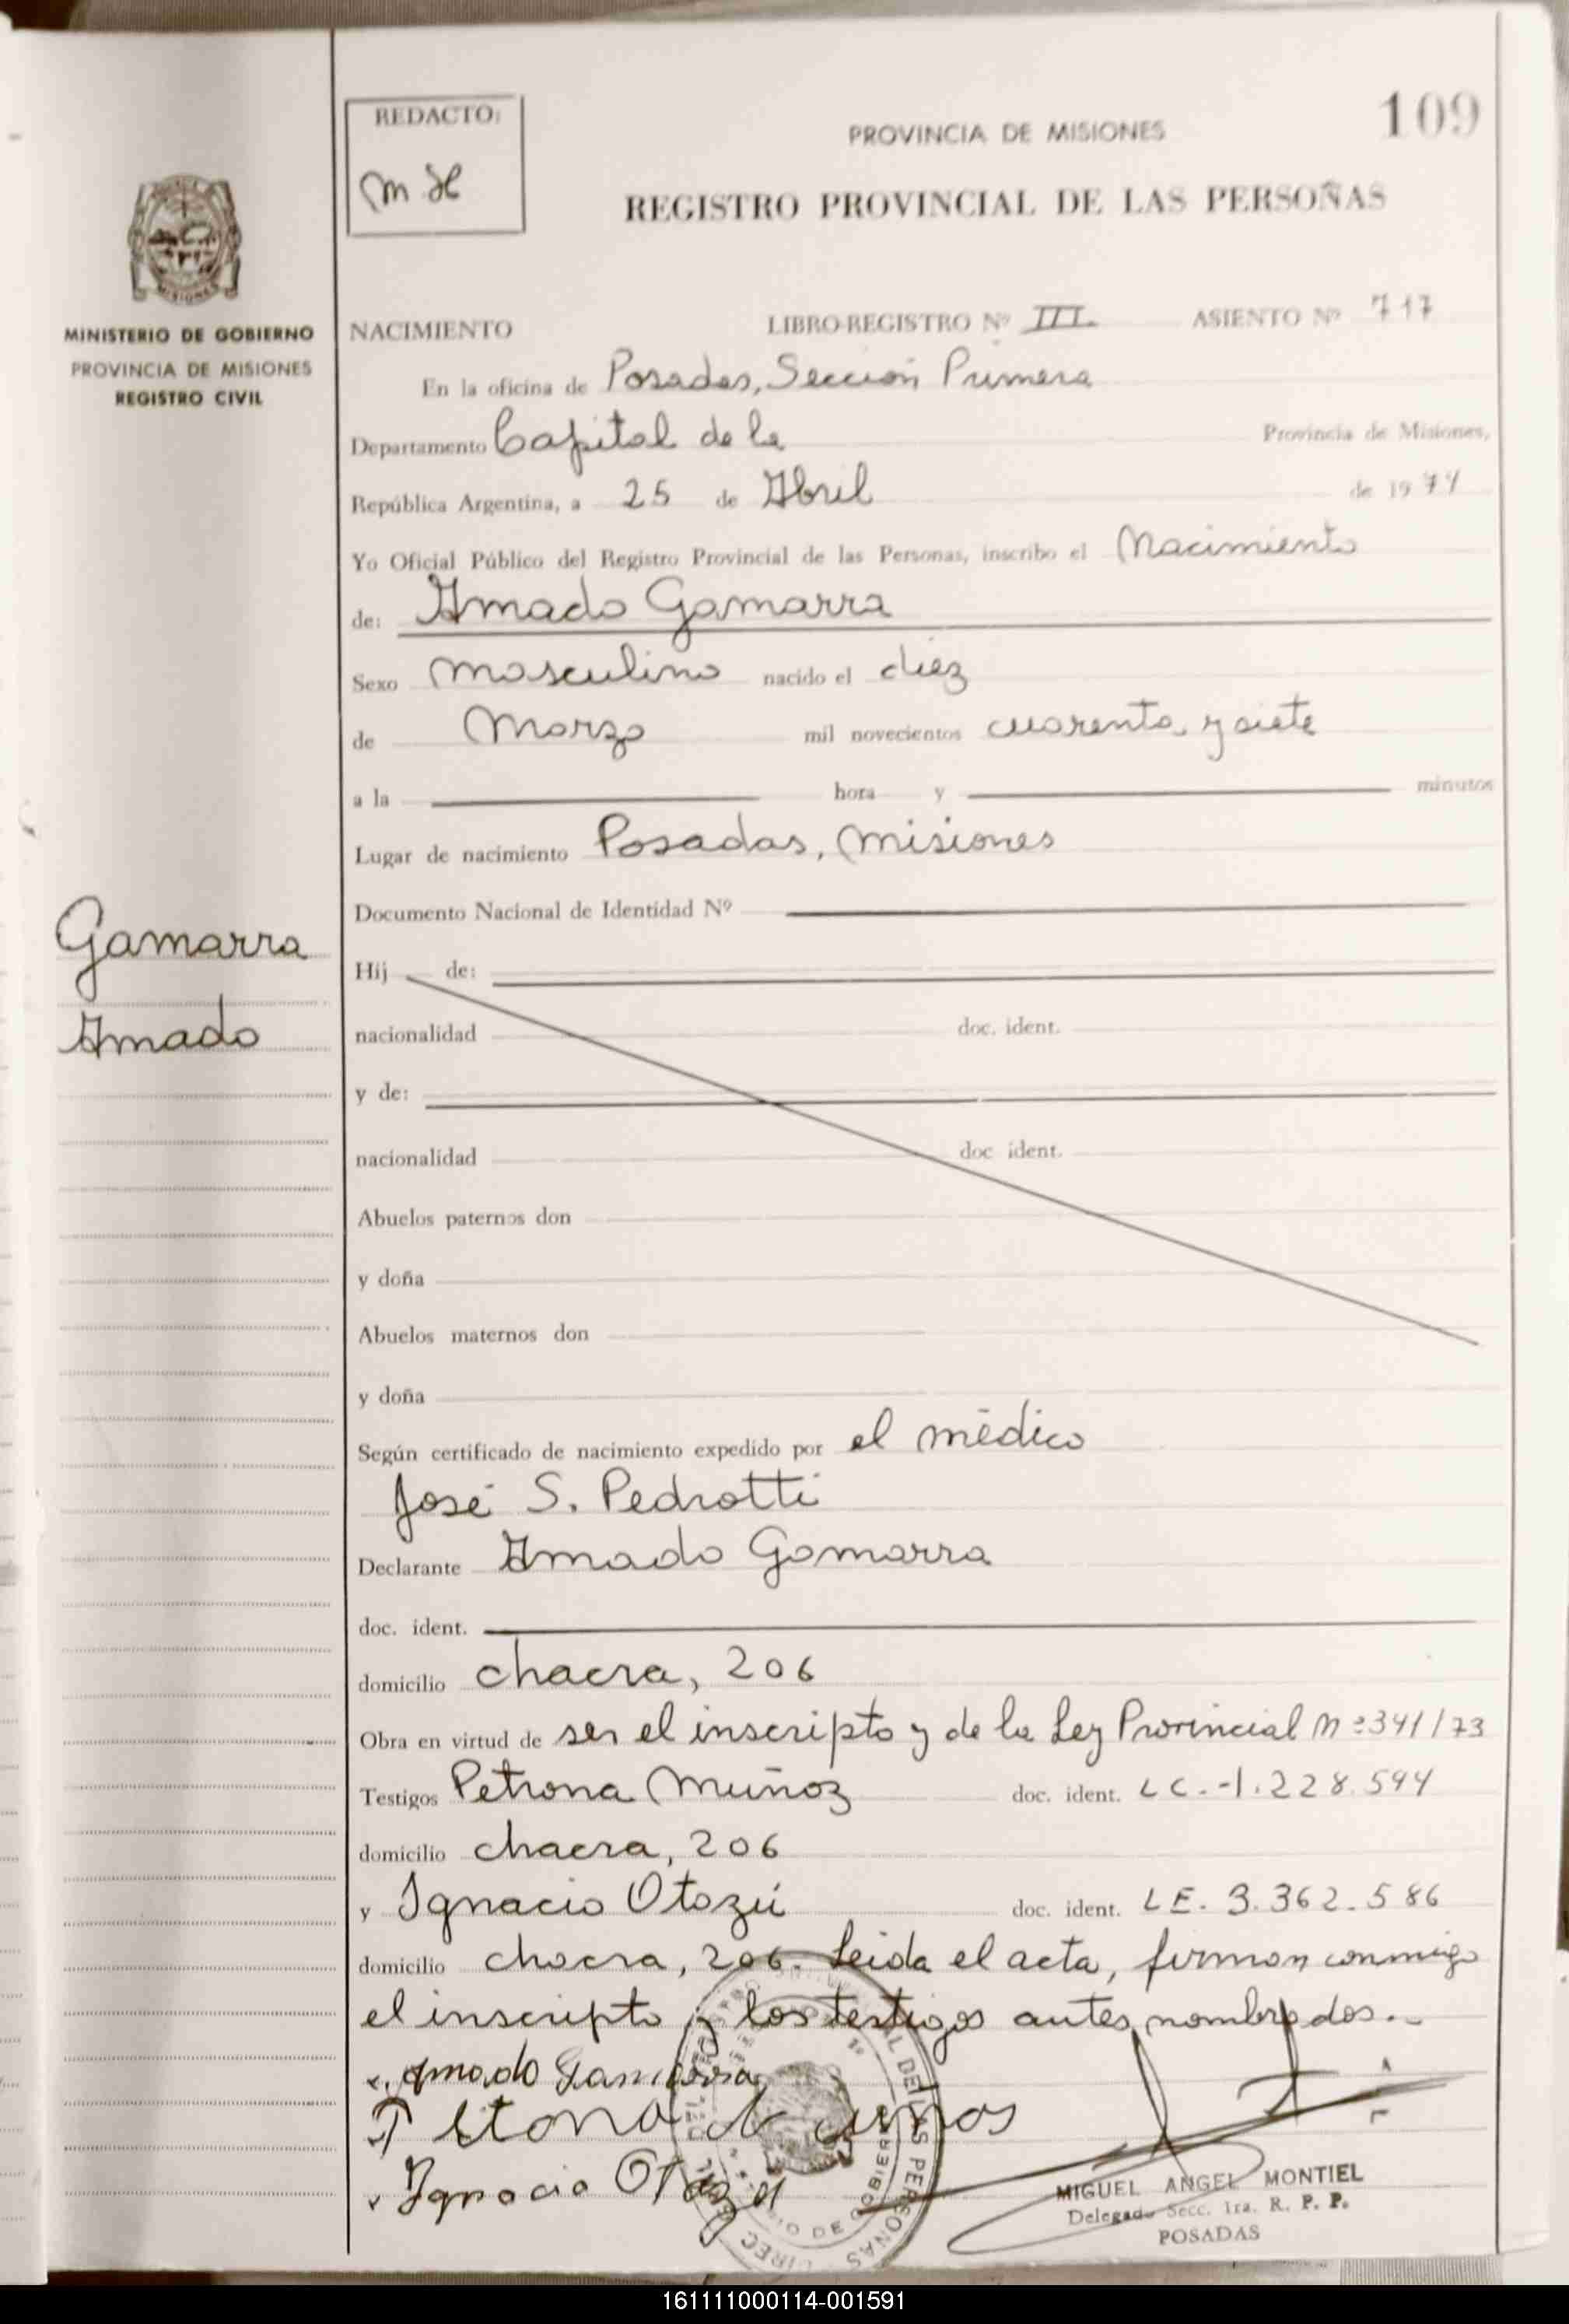 109
REDACTO:
PROVINCIA DE MISIONES
REGISTRO PROVINCIAL DE LAS PERSOÑAS
MISIONES
MINISTERIO DE GOBIERNO
PROVINCIA DE MISIONES
REGISTRO CIVIL
NACIMIENTO LIBRO-REGISTRO Nº III ASIENTO Nº 717
En la oficina de Posadas, Sección Primera
Departamento Capital de la Provincia de Misiones,
República Argentina, a 25 de Abril de 1974
Yo Oficial Público del Registro Provincial de las Personas, inscribo el Nacimiento
de: Amado Gamarra
Sexo masculino nacido el diez
de Marzo mil novecientos cuarenta y siete
a la hora y minutos
Lugar de nacimiento Posadas, Misiones
Documento Nacional de Identidad Nº
Gamarra
Amado
Hij de:
nacionalidad doc. ident.
y de:
nacionalidad doc ident.
Abuelos paternos don
y doña
Abuelos maternos don
y doña
Según certificado de nacimiento expedido por el médico
José S. Pedrotti
Declarante Amado Gamarra
doc. ident.
domicilio chacra, 206
Obra en virtud de ser el inscripto y de la Ley Provincial Nº 341/73
Testigos Petrona Muñoz doc. ident. LC.-1.228.594
domicilio chacra, 206
y Ignacio Otazú doc. ident. LE. 3.362.586
domicilio chacra, 206. Leida el acta, firman conmigo
el inscripto y los testigos antes nombrados.-
Amado Gamarra
Ignacio Otazú
MIGUEL ANGEL MONTIEL
Delegado Secc. 1ra. R. P. P.
POSADAS
161111000114-001591